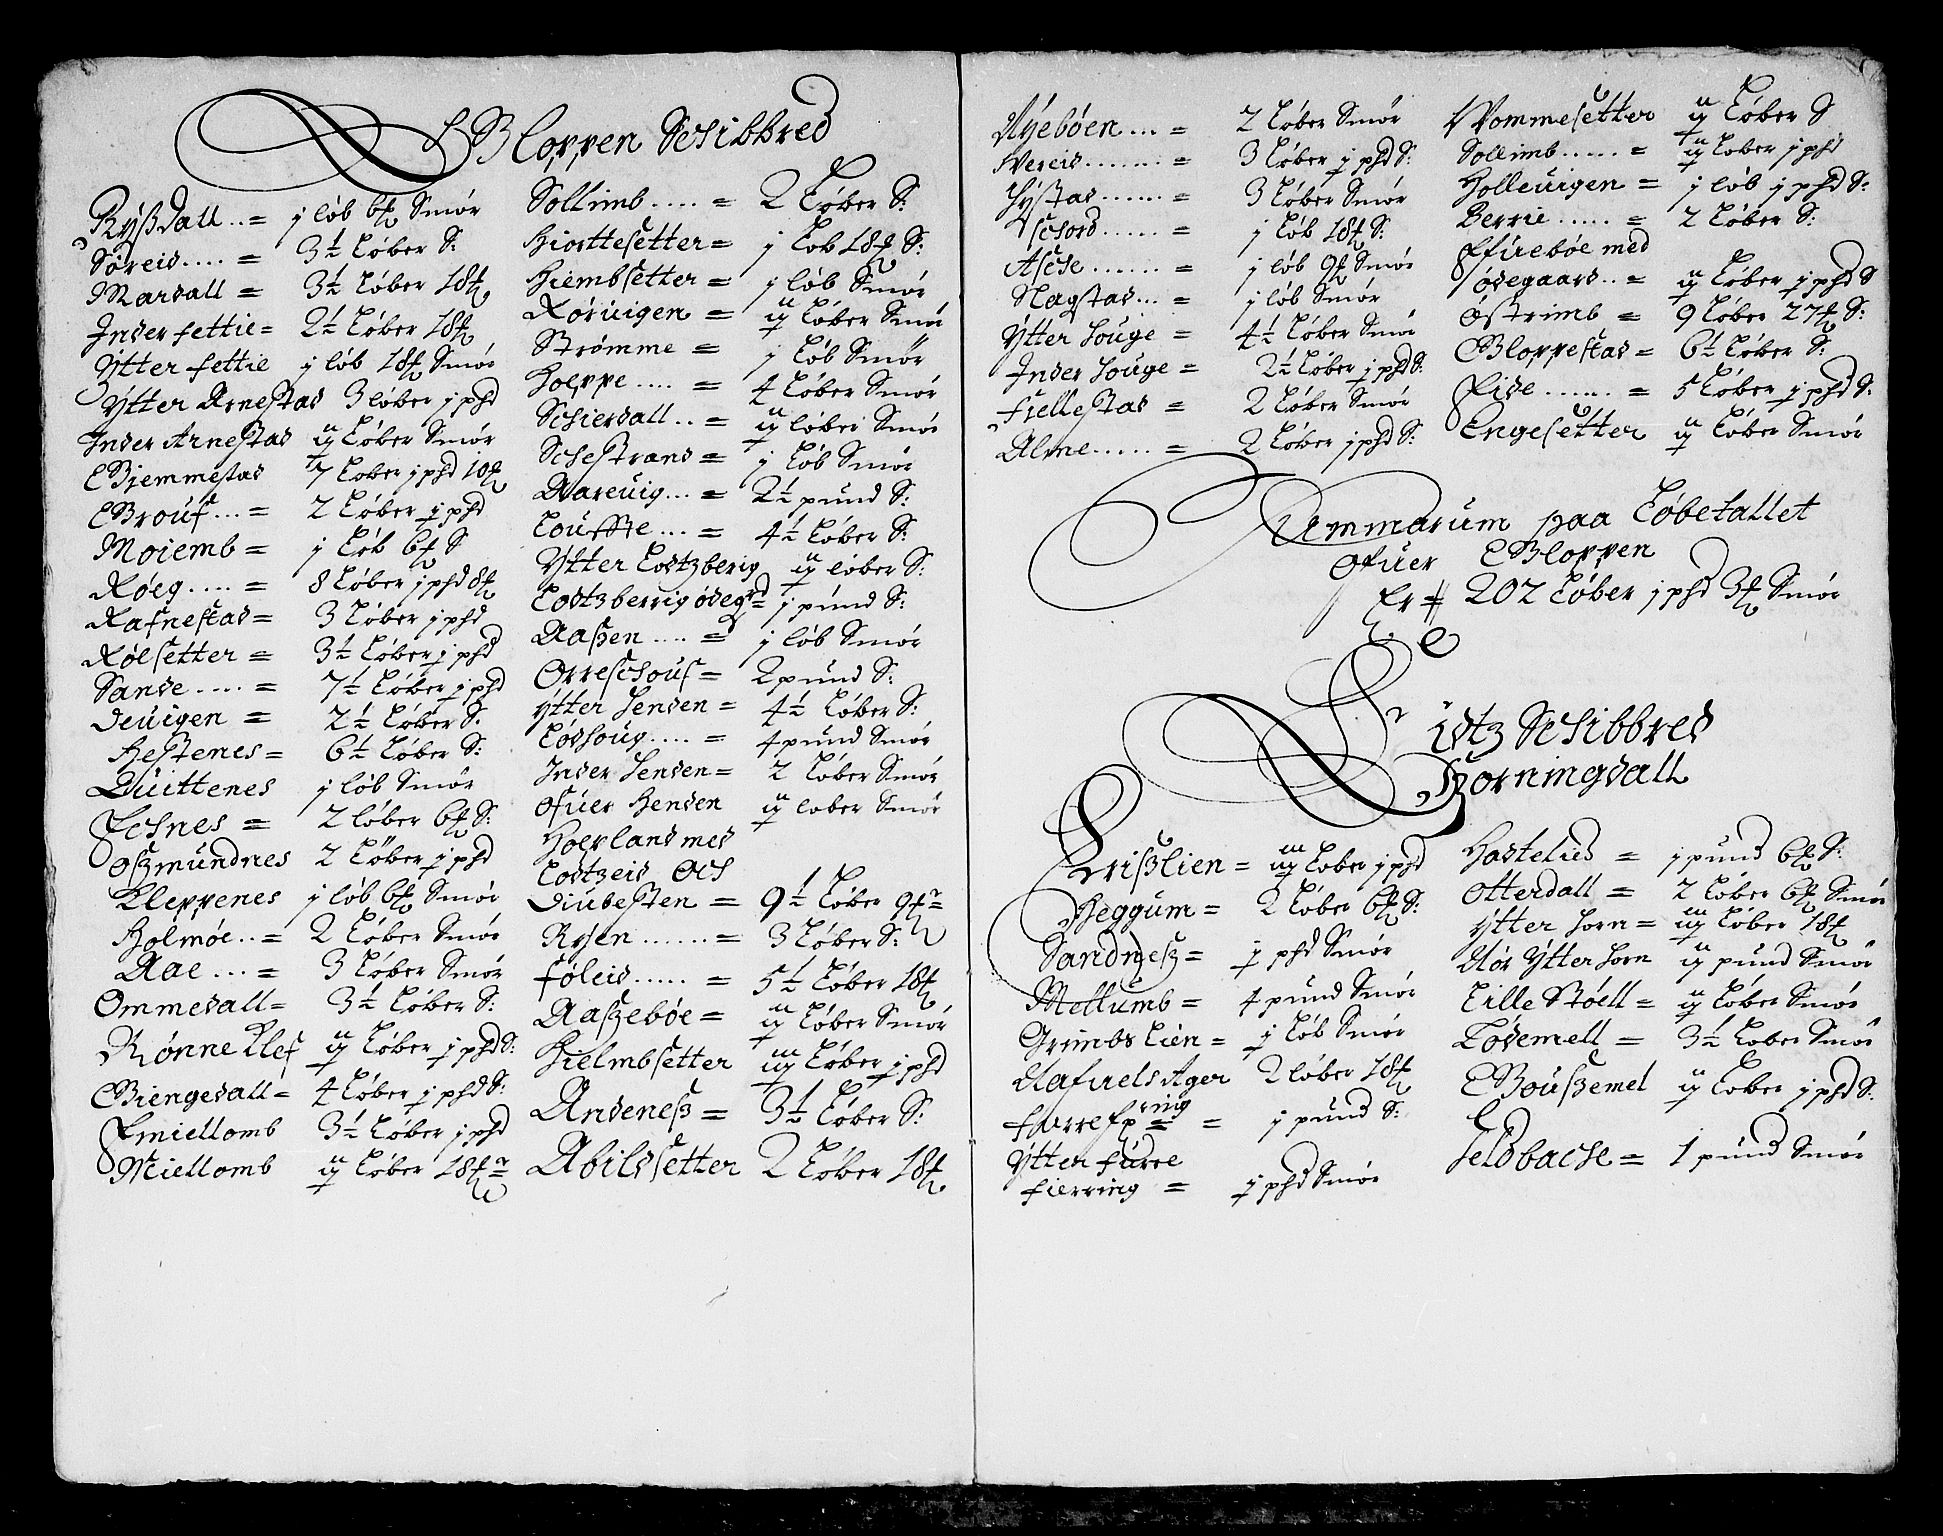 Gloppen Schibbred
Ryssdall .. = j løb 6 # Smør
Søreid .... = 3½ Løber S:
Mardall = 3½ Løber 18 #
Inder fettie = 2½ Løber 18 #
Ytter fettie j løb 18 # Smør
Ytter Arnestad 3 løber j phd
Inder Arnestad ij Løber Smør
Giemmestad 7 Løber j phd 10 #
Brouf ... = 2 Løber j phd
Moiemb = j Løb 6 # S
Røeg .... = 8 Løber j phd 8 #
Rafnestad = 3 Løber j phd
Røesetter = 3½ Løber j phd
Sande .... = 7½ Løber j phd
Deuigen = 2½ Løber S.
Hestenes = 6½ Løber S:
Quittenes j løb Smør
Echnes = 2 løber 6 # S:
Oszmundnes 2 Løber j phd
Kleppenes j løb 6 # Smør
Holmøe .. = 2 Løber Smør
Aae ... = 3 Løber Smør
Ommedall = 3½ Løber S:
Rønne klef ij Løber j phd S:
Giengedall = 4 Løber j phd S:
Emiellomb 3½ Løber j phd
Miellomb ij Løber 18 #
Sollimb .... = 2 Løber S:
Hiortesetter = j Løb 18 # S:
Hiembsetter = j løb Smør
Røruigen = ij Løber Smør
Strømme = j Løb Smør
Hoeppe .... = 4 Løber Smør
Schierdall .. = ij løber Smør
Schestrand = j Løb Smør
Aareuig ... = 2½ pund S:
Louffte .... = 4½ Løber S:
Ytter Lodtzberig ij løber S:
Lodtzberrig ødegrd = j pund S:
Aassen .... = j løb Smør
Orreschouf = 2 pund S:
Ytter Henden = 4½ Løber S:
Lødhoug .... = 4 pund Smør
Inder Henden = 2 Løber Smør
Ofuer Henden ij løber Smør
Hoepland med
Lodtzeid Och
Diubesten = 9½ Løber 9 #
Ryen ...... = 3 Løber S:
føleid ..... = 5½ Løber 18 #
Aaszebøe = ij Løber Smør
Hielmbsetter iij Løber j phd
Andenesz = 3½ Løber S:
Abildsetter 2 Løber 18 #
Myebøen ... = 2 Løber Smør
Vereid ....... = 3 Løber j phd S:
Hystad ...... = 3 Løber Smør
Ischord ...... = j Løb 18 # S:
Asche ....... = j løb 9 # Smør
Hagstad ... = j løb Smør
Ytter Houge = 4½ Løber Smør
Inder Houge = 2½ Løber j phd S:
fiellestad = 2 Løber Smør
Alme ..... = 2 Løber j phd S:
Vommesetter ij Løber S
Sollimb ...... = ij Løber j phd
Holleuigen = j løb j phd S:
Berrie ...... = 2 Løber S:
Ffirebøe med
ødegaard .. = ij Løber j phd S
Østrimb = 9 Løber 27 # S:
Gloppestad = 6½ Løber S:
Eide ...... = 5 Løber j phd S:
Engesetter ij Løber Smør
Summarum paa Løbetallet
Ofuer Gloppen
Er = 202 Løber j phd 3 # Smør
Eidtz Schibbred
Horningdall
Griszlien = iij Løber j phd
Heggum = 2 Løber 6 # S:
Sandnesz = j phd Smør
Mellumb = 4 pund Smør
Grimbs Lien = j Løb Smør
Nafuelsager 2 løber 18 #
j pund S:
Ytter furre
fierring = j phd Smør
Hadtelied = j pund 6 # S:
Otterdall = 2 Løber 6 # Smør
Ytter horn = iij Løber 18 #
Nør Ytter horn ij pund Smør
Lille Støell = ij Løber Smør
Lødemell = 3½ Løber Smør
Bouszemel ij Løber j phd S:
Seldbache = 1 pund Smør